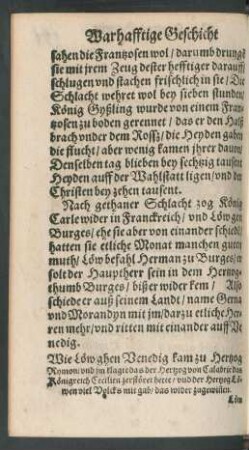 Warhafftige Geschicht
sahen die Frantzosen wol / darumb drungẽ
sie mit jrem Zeug dester hefftiger darauff /
schlugen vnd stachen frischlich in sie / Die
Schlacht wehret wol bey sieben stunden /
König Gyßling wurde von einem Frantz
zosen zu boden gerennet / das er den Halß
brach vnder dem Rossz / die Heyden gaben
die flucht / aber wenig kamen jhrer dauon /
Denselben tag blieben bey sechtzig tausent
Heyden auff der Wahlstatt ligen / vnd der
Christen bey zehen tausent.
Nach gethaner Schlacht zog König
Carle wider in Franckreich / vnd Löw gen
Burges / ehe sie aber von einander schiedẽ /
hatten sie etliche Monat manchen guten
muth / Löw befahl Herman zu Burges / er
solt der Hauptherr sein in dem Hertzog-
thumb Burges / biß er wider kem / Also
schiede er auß seinem Landt / name Gerna
vnd Morandyn mit jm / darzu etliche Her-
ren mehr / vnd ritten mit einander auff Ve
nedig.
Wie Löw ghen Venedig kam zu Hertzog
Rymon / vnd jm klagt das der Hertzog von Calabria das
Königreich Cecilien zerstöret hette / vnd der Hertzog Lö-
wen viel Volcks mit gab / das wider zugewinnen.
Löw